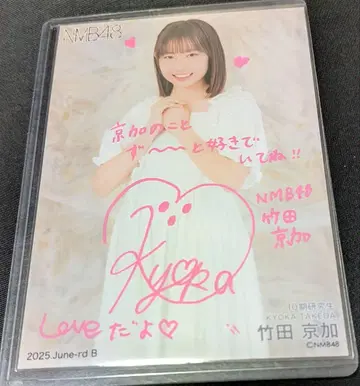 NMB48
京加のこと
ず〜〜と好きで
いてね!!
NMB48
竹田
京加
Kyoka
Loveだよ♡
10期研究生
KYOKA TAKEDA
竹田 京加
©NMB48
2025.June-rd B